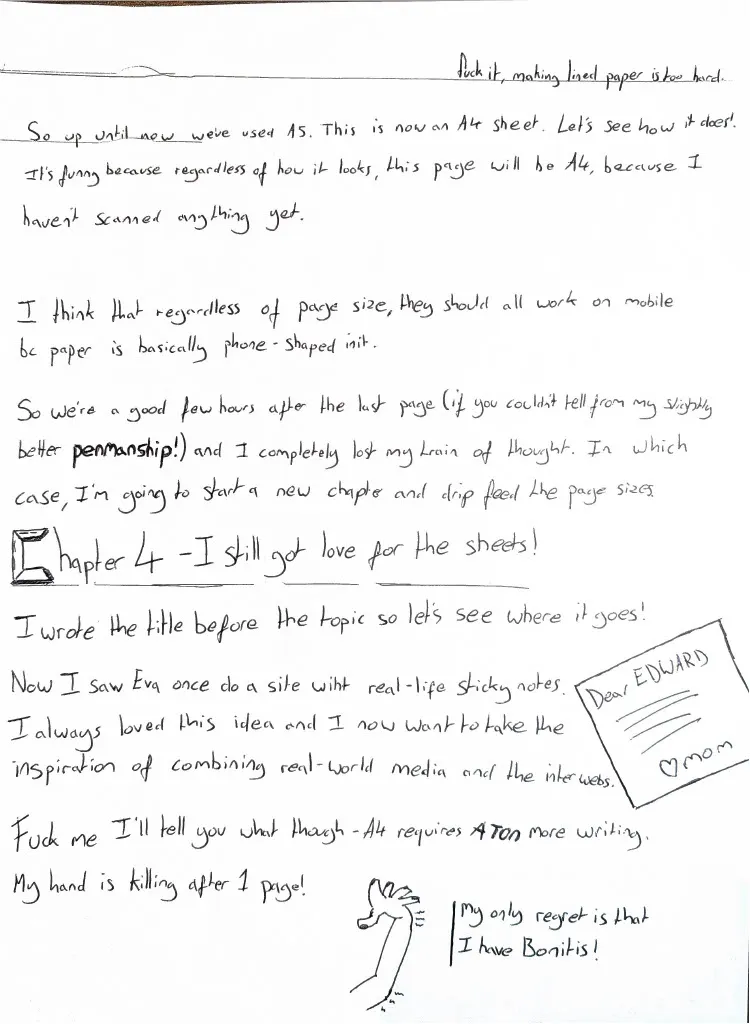 Fuck it, making lined paper is too hard.
So up until now we've used A5. This is now an A4 sheet. Let's see how it does!
It's funny because regardless of how it looks, this page will be A4, because I
haven't scanned anything yet.
I think that regardless of page size, they should all work on mobile
bc paper is basically phone-shaped init.
So we're a good few hours after the last page (if you couldn't tell from my slightly
better penmanship!) and I completely lost my train of thought. In which
case, I'm going to start a new chapter and drip feed the page sizes
Chapter 4 - I still got love for the sheets!
I wrote the title before the topic so let's see where it goes!
Now I saw Eva once do a site wiht real-life sticky notes.
I always loved this idea and I now want to take the
inspiration of combining real-world media and the interwebs.
Dear EDWARD
♡ mom
Fuck me I'll tell you what though - A4 requires A TON more writing.
My hand is killing after 1 page!
My only regret is that
I have Bonitis!